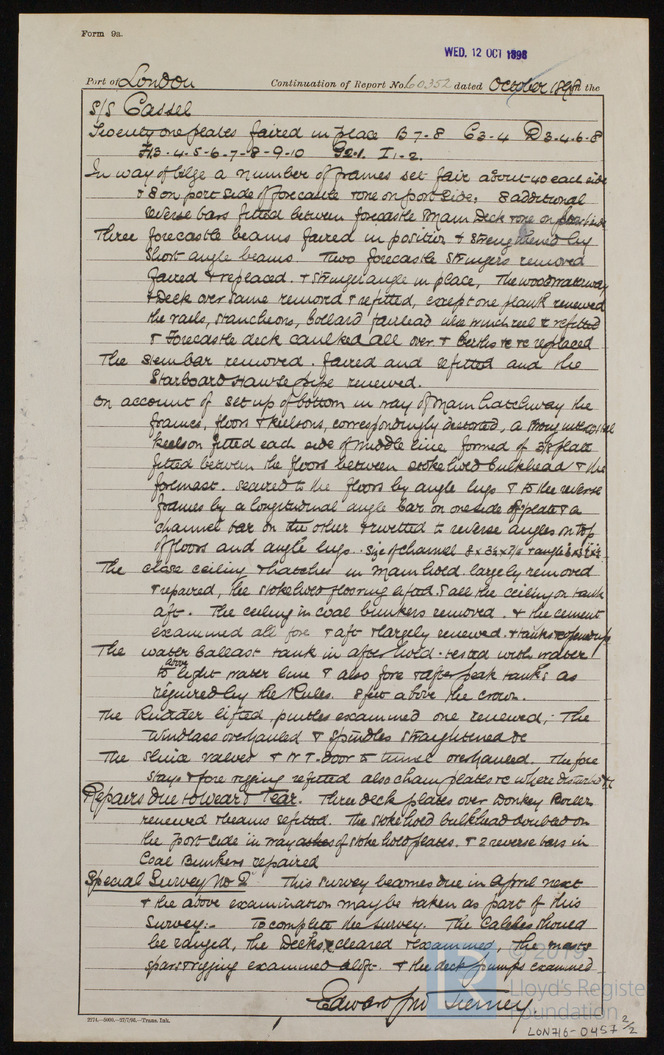 Form 9a.
WED. 12 OCT 1898
Port of London Continuation of Report No. 60,352 dated October 1898 the
S/S Cassel
Twenty one plates faired in place B 7-8 C 3-4 D 3.4.6.8
3.4-5-6-7-8-9-10 I 1-2.
In way of bilge a number of frames set fair about 40 each side
& 8 on port side of forecastle & one on port side, 8 additional
reverse bars fitted between forecastle & main deck & one on side
Three forecastle beams faired in position & strengthened by
short angle beams. Two forecastle stringers removed
faired & replaced. & stringer angle in place, The wood waterway
& deck over same removd & refitted, except one plank renewed
the rails, stanchions, bollard fairlead reel & refitted
& Forecastle deck caulked all over & berths &c &c replaced
The stembar removed. faired and refitted and the
Starboard Hawse pipe renewed.
On account of set up of bottom in way of Main hatchway the
frames, floors & keelsons, correspondingly distorted, a strong
keelson fitted each side of middle line formed of 3/8 plate
fitted between the floors between stokehold bulkhead & the
foremast. secured to the floors by angle lugs & to the reverse
frames by a longitudinal angle bar on one side of plate & a
channel bar on the other & rivetted to reverse angles on top
of floors and angle lugs. size of channel & angle
The close ceiling & hatches in Main hold largely removed
& repaired, the stokehold flooring lifted & all the ceiling on tank
aft. The ceiling in coal bunkers removed. & the cement
examined all fore & aft & largely renewed & tanks
The water ballast tank in after hold. tested with water
to above light water line & also fore & after peak tanks as
required by the Rules. 8 feet above the crown.
The Rudder lifted, pintles examined one renewed, The
Windlass overhauled & spindles straightened &c
The sluice valves & W T. Door to tunnel overhauled. The fore
stays & fore rigging refitted also chain plates &c where disturbed
Repairs due to wear & Tear. Three deck plates over Donkey Boiler
renewed & beams refitted. The stokehold bulkhead doubled on
the Port side in way of stokehold plates. & 2 reverse bars in
Coal Bunkers repaired
Special Survey No 2 This survey becomes due in April next
& the above examination may be taken as part of this
Survey:- To complete the survey. The Cables should
be ranged, the Decks cleared & examined, The masts
spars & rigging examined aloft. & the deck pumps examined
Edward Jno Tierney
© 2019
Lloyd's Register
Foundation
2274.—5000.—27/7/96.—Trans. Ink.
LON716-0457 2/2